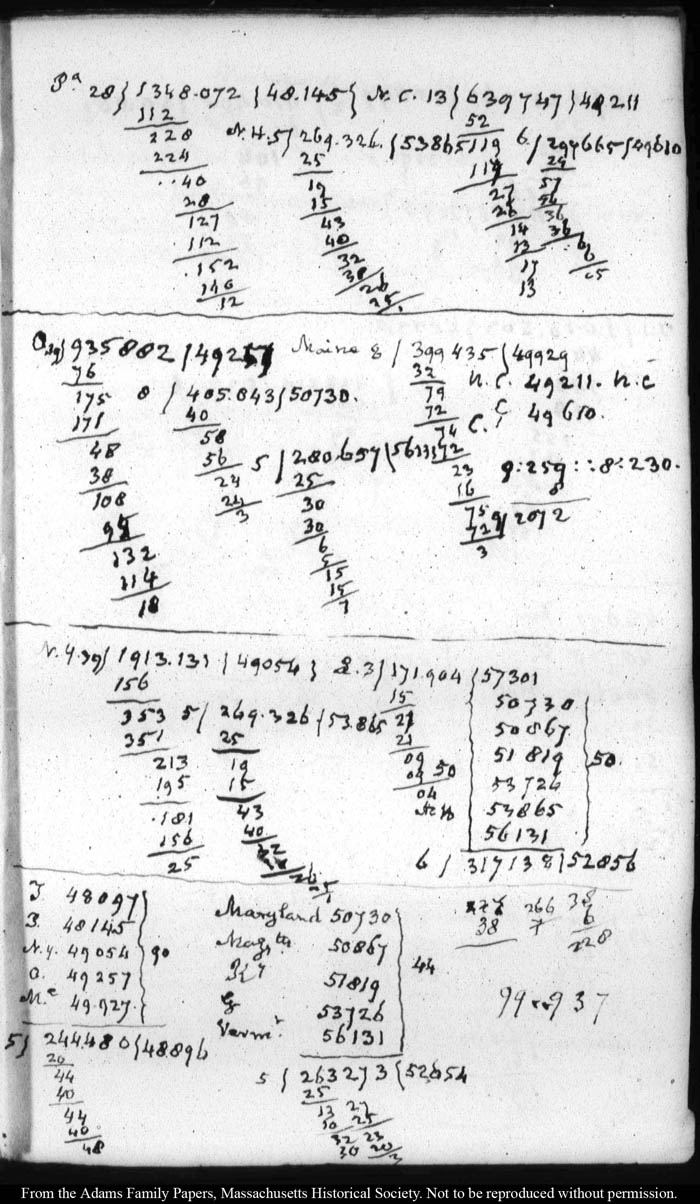 Pa 28) 1348.072 (48.145} N.C. 13) 639747 (49211
112
228
224
..40
28
127
112
.152
140
12
N.H. 5) 269.326. (53865
25
19
15
43
40
32
30
26
25.
52
119
117
27
26
14
13
17
13
6) 297665 (49610
24
57
54
36
36
.6
6
05
O. 19) 935882 (49257
76
175
171
48
38
108
95
132
114
18
8 ) 405.843 (50730.
40
58
56
24
24
3
5 ) 280.657 (56131
25
30
30
6
5
15
15
7
Maine 8 ) 399435 (49929
32
79
72
74
72
23
16
75
72
3
N.C. 49211. N.C
C. 49610.
9:259::8:230.
8
9) 2072
N.Y. 39) 1913.131 (49054 } R. 3) 171.904 (57301
156
353
351
213
195
.181
156
25
5 ) 269.326 (53.865
25
19
15
43
40
32
26
25
15
21
21
09
09
04
50
50730
50867
51819
53726
53865
56131
50.
6 ) 317138 (52856
T 48097
P. 48145
N.Y. 49054
O. 49257
Me 49.927.
90
5) 244480 (48896
20
44
40
44
40
48
Maryland 50730
50867
51819
G 53726
Vermt. 56131
44
5 ) 263273 (52654
25
13
10
32
30
27
25
23
20
3
38
266
7
38
6
228
99..937
From the Adams Family Papers, Massachusetts Historical Society. Not to be reproduced without permission.